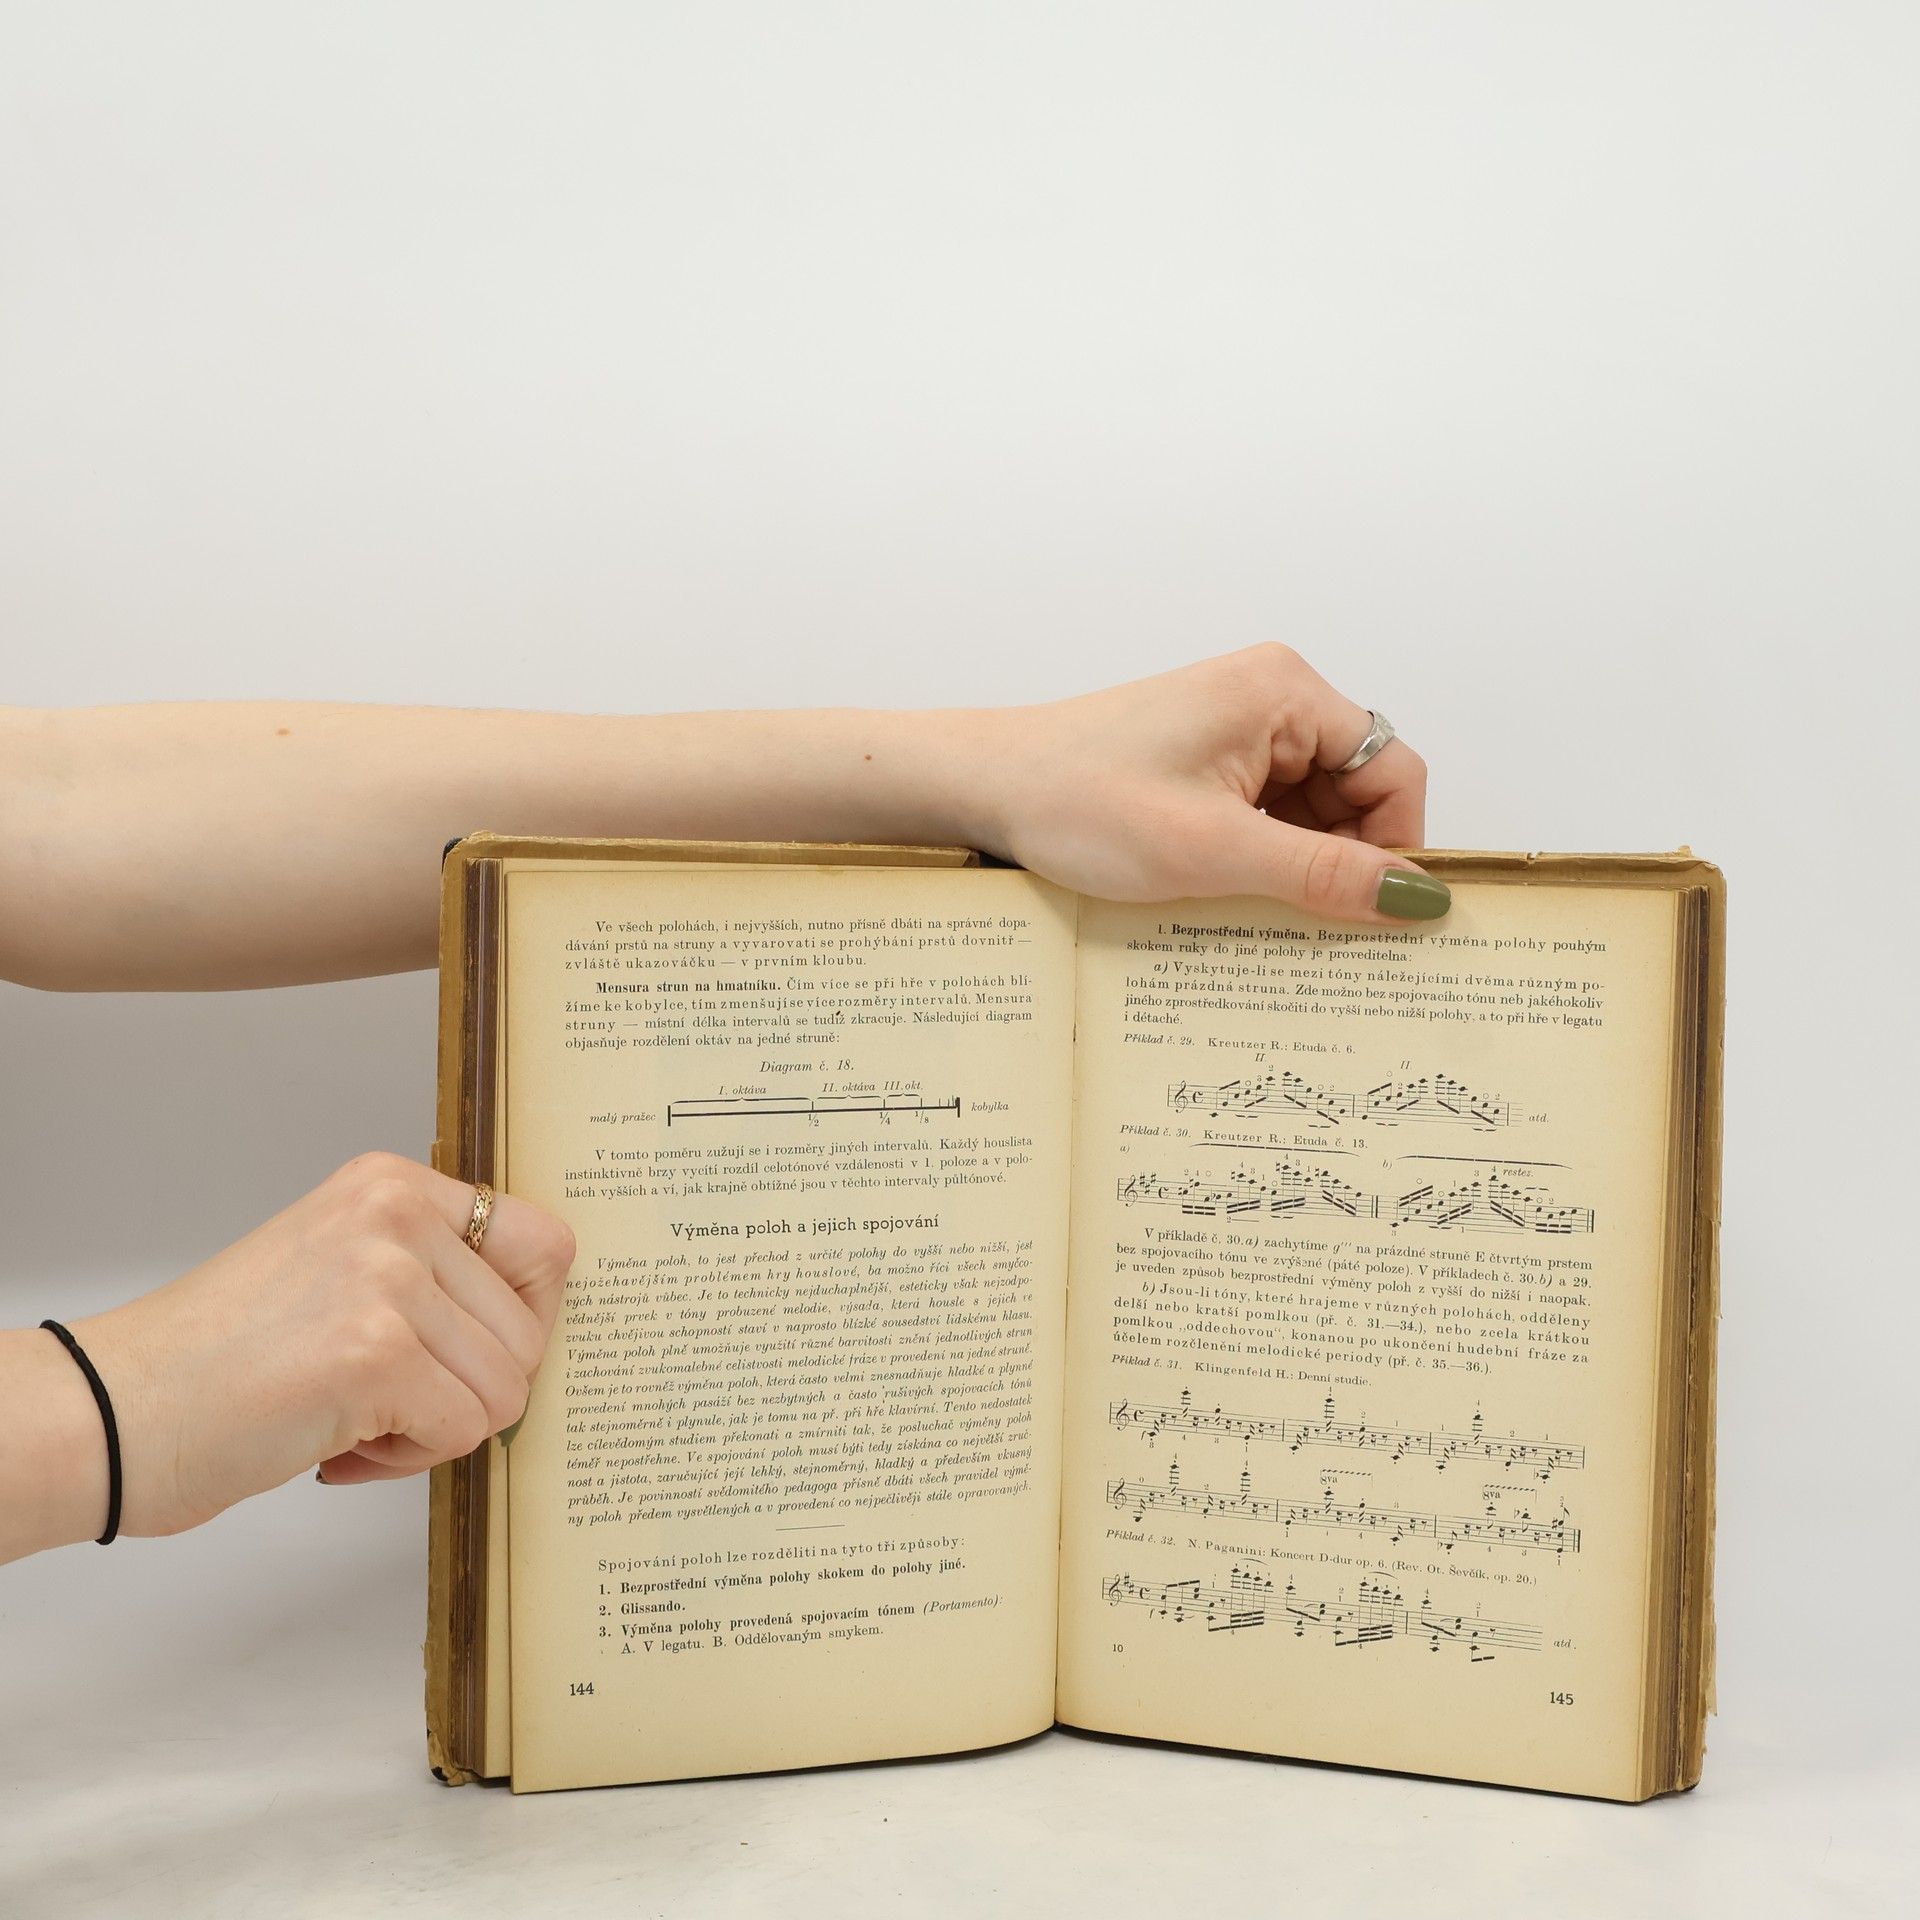 Ve všech polohách, i nejvyšších, nutno přísně dbáti na správné dopa-
dávání prstů na struny a vyvarovati se prohýbání prstů dovnitř —
zvláště ukazováčku — v prvním kloubu.
Mensura strun na hmatníku. Čím více se při hře v polohách blí-
žíme ke kobylce, tím zmenšují se více rozměry intervalů. Mensura
struny — místní délka intervalů se tudíž zkracuje. Následující diagram
objasňuje rozdělení oktáv na jedné struně:
Diagram č. 18.
I. oktáva II. oktáva III. okt.
malý pražec kobylka
1/2 1/4 1/8
V tomto poměru zužují se i rozměry jiných intervalů. Každý houslista
instinktivně brzy vycítí rozdíl celotónové vzdálenosti v 1. poloze a v polo-
hách vyšších a ví, jak krajně obtížné jsou v těchto intervaly půltónové.
Výměna poloh a jejich spojování
Výměna poloh, to jest přechod z určité polohy do vyšší nebo nižší, jest
nejožehavějším problémem hry houslové, ba možno říci všech smyčco-
vých nástrojů vůbec. Je to technicky nejduchaplnější, esteticky však nejzodpo-
vědnější prvek v tóny probuzené melodie, výsada, která housle s jejich ve
zvuku chvějivou schopností staví v naprosto blízké sousedství lidskému hlasu.
Výměna poloh plně umožňuje využití různé barvitosti znění jednotlivých strun
i zachování zvukomalebné celistvosti melodické fráze v provedení na jedné struně.
Ovšem je to rovněž výměna poloh, která často velmi znesnadňuje hladké a plynné
provedení mnohých pasáží bez nezbytných a často rušivých spojovacích tónů
tak stejnoměrně i plynule, jak je tomu na př. při hře klavírní. Tento nedostatek
lze cílevědomým studiem překonati a zmírniti tak, že posluchač výměny poloh
téměř nepostřehne. Ve spojování poloh musí býti tedy získána co největší zruč-
nost a jistota, zaručující její lehký, stejnoměrný, hladký a především vkusný
průběh. Je povinností svědomitého pedagoga přísně dbáti všech pravidel výmě-
ny poloh předem vysvětlených a v provedení co nejpečlivěji stále opravovaných.
Spojování poloh lze rozděliti na tyto tři způsoby:
1. Bezprostřední výměna polohy skokem do polohy jiné.
2. Glissando.
3. Výměna polohy provedená spojovacím tónem (Portamento):
A. V legatu. B. Oddělovaným smykem.
144
1. Bezprostřední výměna. Bezprostřední výměna polohy pouhým
skokem ruky do jiné polohy je proveditelna:
a) Vyskytuje-li se mezi tóny náležejícími dvěma různým po-
lohám prázdná struna. Zde možno bez spojovacího tónu neb jakéhokoliv
jiného zprostředkování skočiti do vyšší nebo nižší polohy, a to při hře v legatu
i détaché.
Příklad č. 29. Kreutzer R.: Etuda č. 6.
II. II.
atd.
Příklad č. 30. Kreutzer R.: Etuda č. 13.
a) b) restez.
V příkladě č. 30. a) zachytíme g''' na prázdné struně E čtvrtým prstem
bez spojovacího tónu ve zvýšené (páté poloze). V příkladech č. 30. b) a 29.
je uveden způsob bezprostřední výměny poloh z vyšší do nižší i naopak.
b) Jsou-li tóny, které hrajeme v různých polohách, odděleny
delší nebo kratší pomlkou (př. č. 31.—34.), nebo zcela krátkou
pomlkou „oddechovou“, konanou po ukončení hudební fráze za
účelem rozčlenění melodické periody (př. č. 35.—36.).
Příklad č. 31. Klingenfeld H.: Denní studie.
f
8va 8va
Příklad č. 32. N. Paganini: Koncert D-dur op. 6. (Rev. Ot. Ševčík, op. 20.)
f
atd.
10
145